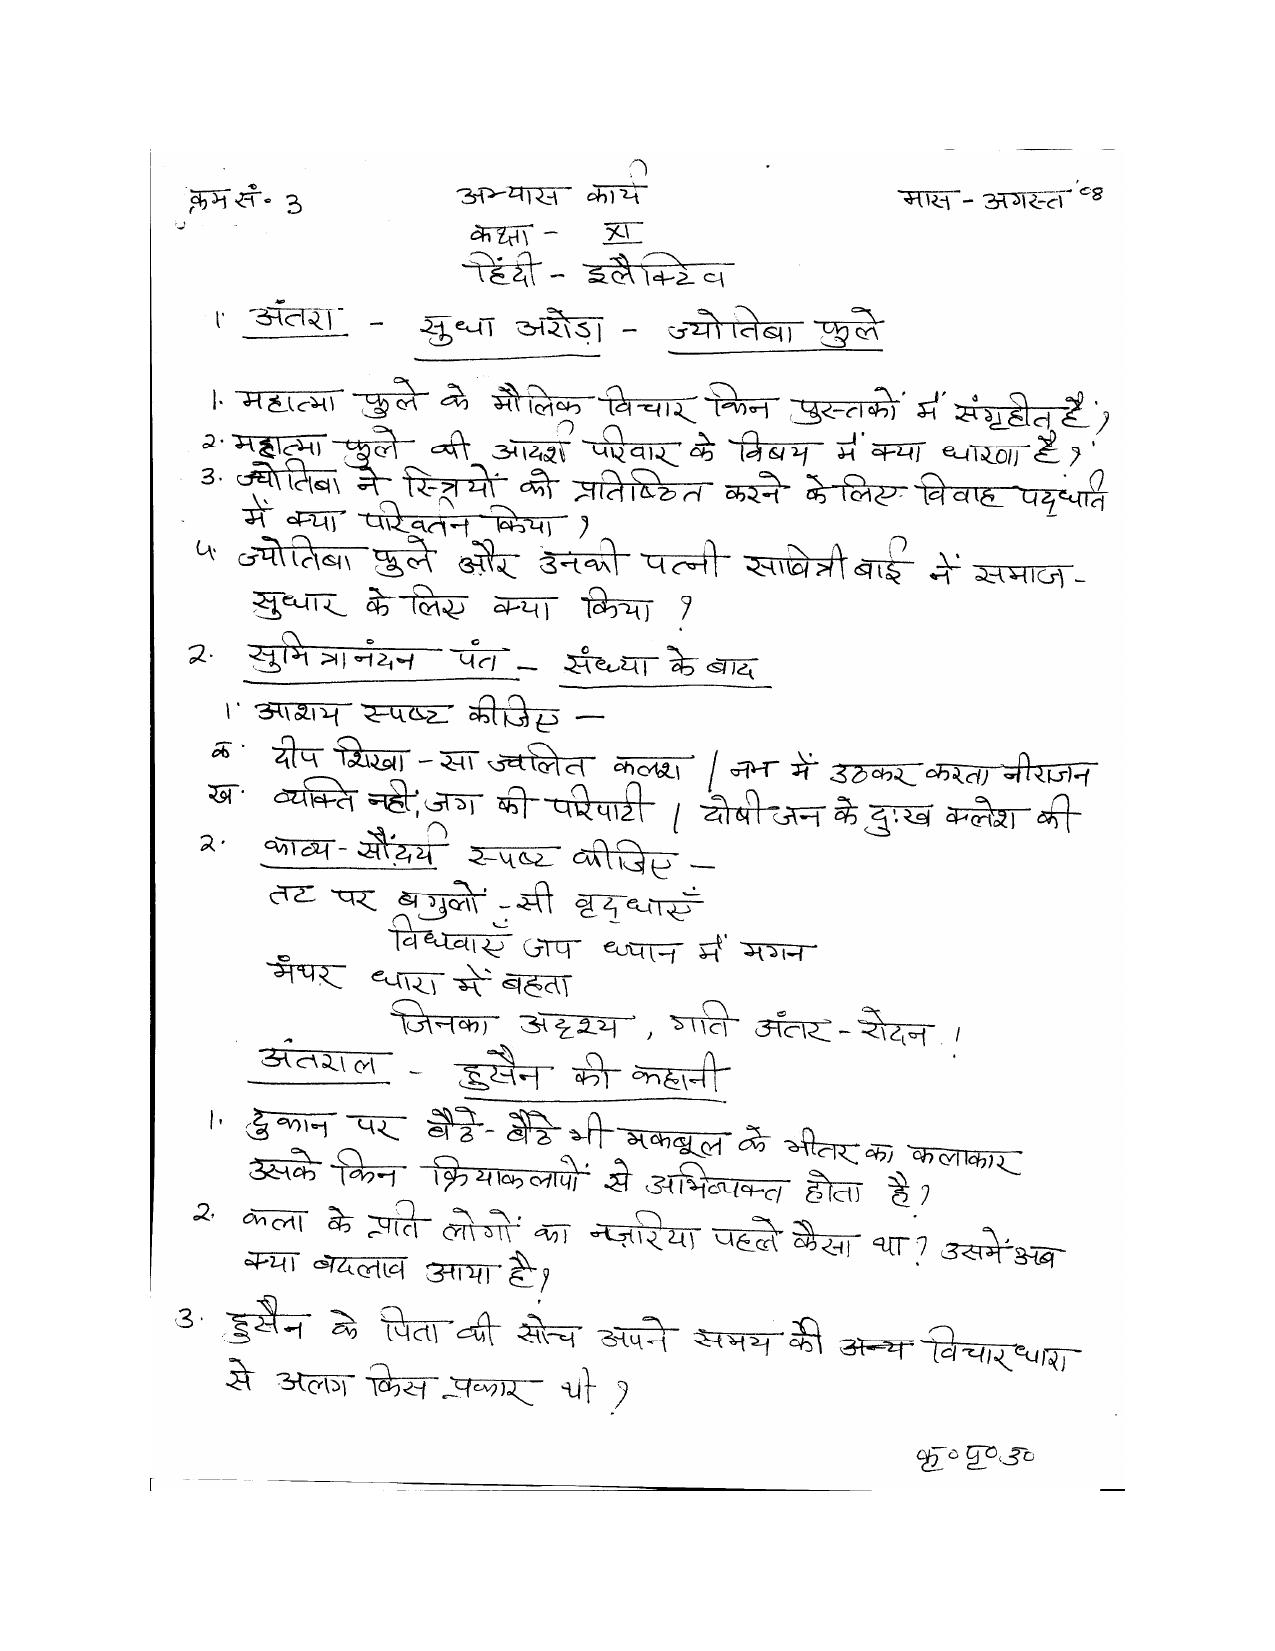 क्रम सं. 3 अभ्यास कार्य मास - अगस्त '08
कक्षा - XI
हिंदी - इलैक्टिव
1. अंतरा - सुधा अरोड़ा - ज्योतिबा फुले
1. महात्मा फुले के मौलिक विचार किन पुस्तकों में संगृहीत हैं?
2. महात्मा फुले की आदर्श परिवार के विषय में क्या धारणा है?
3. ज्योतिबा ने स्त्रियों को प्रतिष्ठित करने के लिए विवाह पद्धति
में क्या परिवर्तन किया ?
4. ज्योतिबा फुले और उनकी पत्नी सावित्रीबाई नें समाज-
सुधार के लिए क्या किया ?
2. सुमित्रानंदन पंत - संध्या के बाद
1. आशय स्पष्ट कीजिए -
क. दीप शिखा - सा ज्वलित कलश / नभ में उठकर करता नीराजन
ख. व्यक्ति नहीं, जग की परिपाटी / दोषी जन के दुःख क्लेश की
2. काव्य - सौंदर्य स्पष्ट कीजिए -
तट पर बगुलों - सी वृद्धाएँ
विधवाएँ जप ध्यान में मगन
मंथर धारा में बहता
जिनका अदृश्य, गति अंतर - रोदन !
अंतराल - हुसैन की कहानी
1. दुकान पर बैठे - बैठे भी मकबूल के भीतर का कलाकार
उसके किन क्रियाकलापों से अभिव्यक्त होता है?
2. कला के प्रति लोगों का नज़रिया पहले कैसा था? उसमें अब
क्या बदलाव आया है?
3. हुसैन के पिता की सोच अपने समय की अन्य विचारधारा
से अलग किस प्रकार थी ?
कृ०पृ०उ०